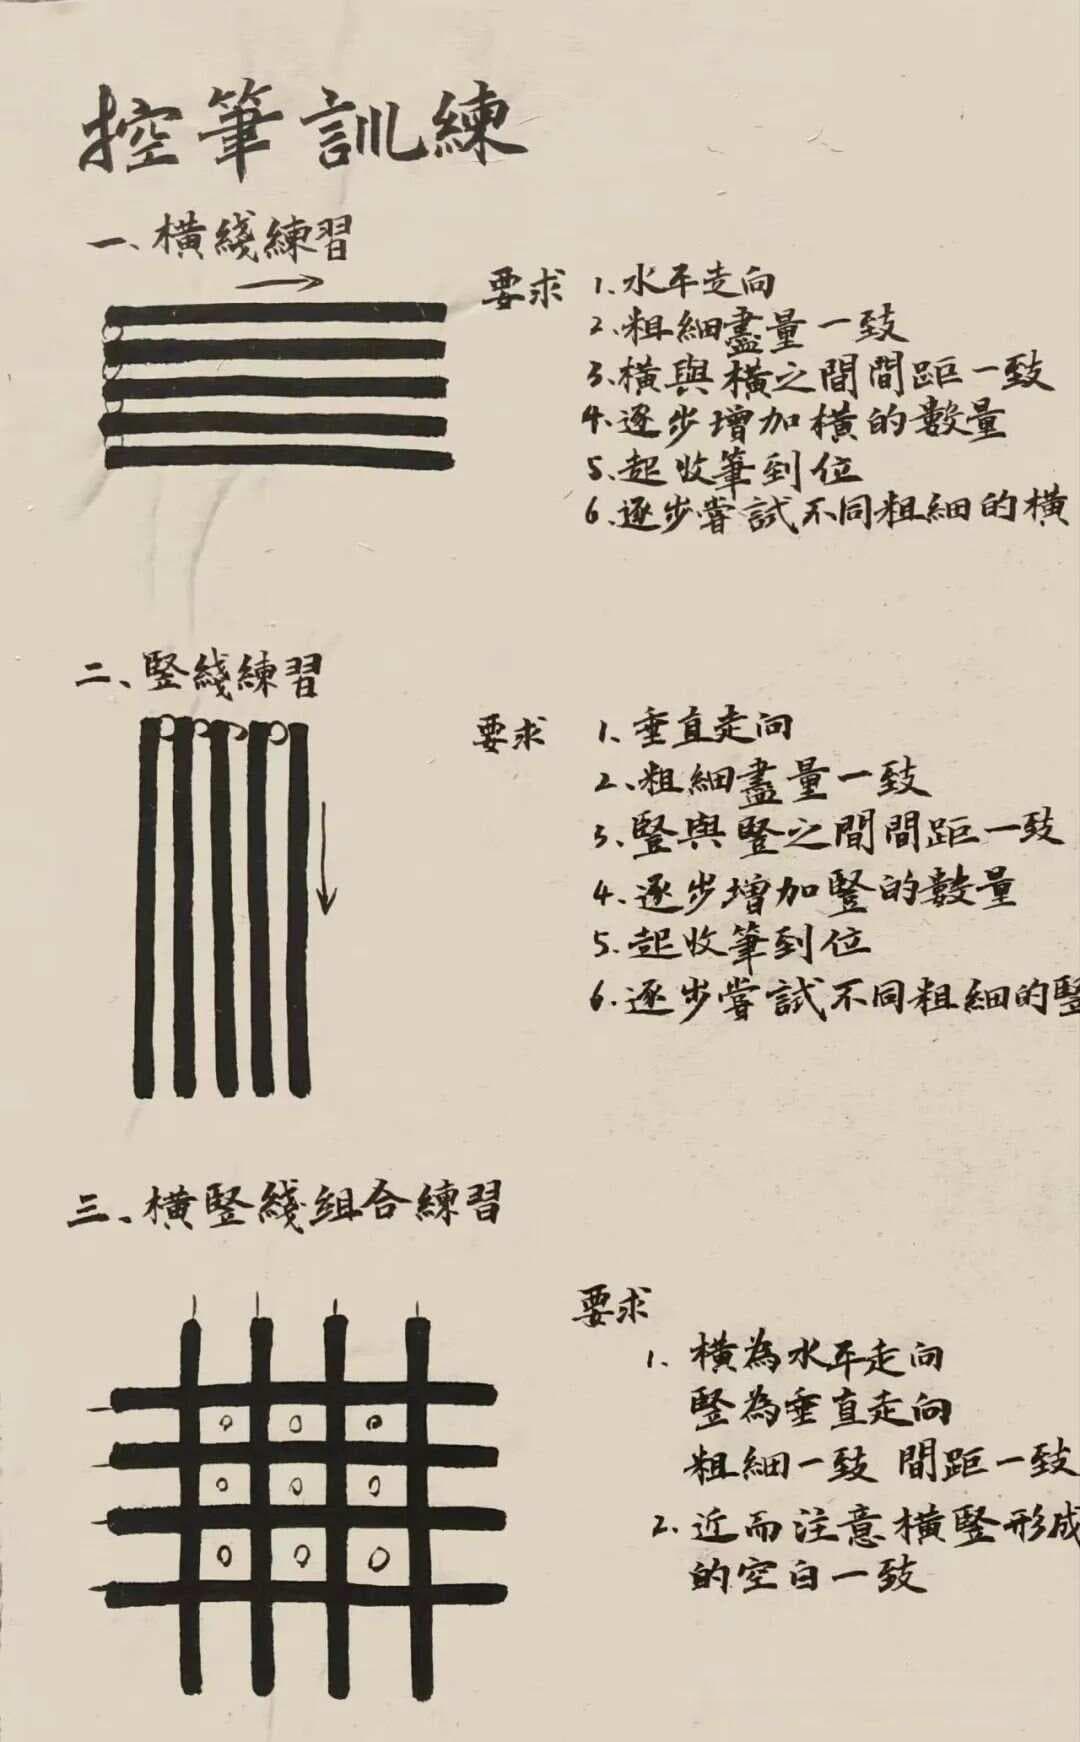 控筆訓練
一、橫綫練習
要求 1、水平走向
2、粗細盡量一致
3、橫與橫之間間距一致
4、逐步增加橫的數量
5、起收筆到位
6、逐步嘗試不同粗細的橫
二、竪綫練習
要求 1、垂直走向
2、粗細盡量一致
3、竪與竪之間間距一致
4、逐步增加竪的數量
5、起收筆到位
6、逐步嘗試不同粗細的竪
三、橫竪綫組合練習
要求
1、橫為水平走向
竪為垂直走向
粗細一致 間距一致
2、近而注意橫竪形成
的空白一致